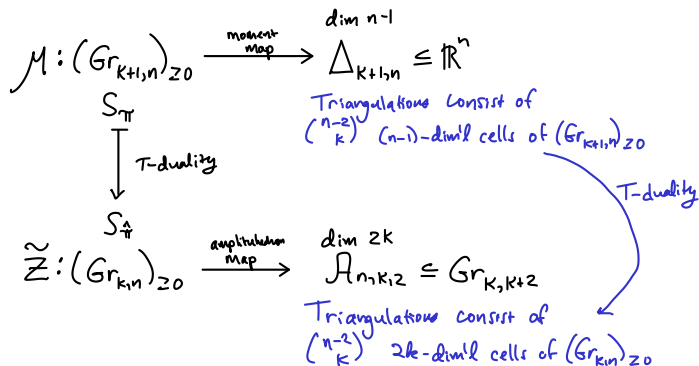 dim n-1
μ : (Gr_{k+1,n})_{≥0} moment map → Δ_{k+1,n} ⊆ ℝ^n
Triangulations consist of
\binom{n-2}{k} (n-1)-dim'l cells of (Gr_{k+1,n})_{≥0}
S_π
T-duality
T-duality
S_{\hat{π}}
dim 2k
\tilde{Z} : (Gr_{k,n})_{≥0} amplituhedron map → A_{n,k,2} ⊆ Gr_{k,k+2}
Triangulations consist of
\binom{n-2}{k} 2k-dim'l cells of (Gr_{k,n})_{≥0}